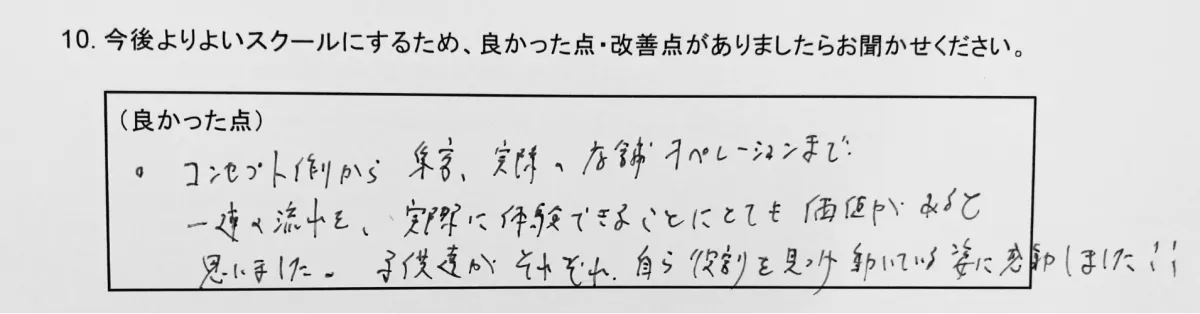 10. 今後よりよいスクールにするため、良かった点・改善点がありましたらお聞かせください。
(良かった点)
。コンセプト作りから 集客、実際の店舗オペレーションまで
一連の流れを、実際に体験できることにとても価値があると
思いました。子供達がそれぞれ、自ら役割を見つけ動いている姿に感動しました!!